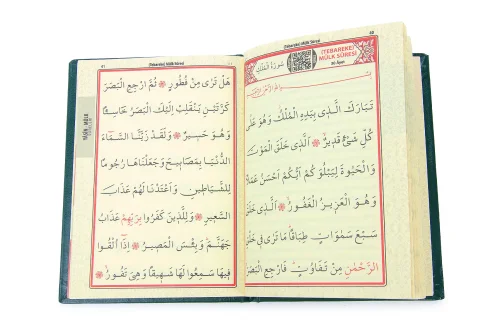 40
(TEBAREKE)
MÜLK SÛRESİ
30 Âyet
سُورَةُ الْمُلْكِ
تَبَارَكَ الَّذِى بِيَدِهِ الْمُلْكُ وَهُوَ عَلٰى
كُلِّ شَيْءٍ قَدِيرٌ اَلَّذِى خَلَقَ الْمَوْتَ
وَالْحَيٰوةَ لِيَبْلُوَكُمْ اَيُّكُمْ اَحْسَنُ عَمَلًا
وَهُوَ الْعَزِيزُ الْغَفُورُ اَلَّذِى خَلَقَ
سَبْعَ سَمٰوَاتٍ طِبَاقًا مَا تَرٰى فِى خَلْقِ
الرَّحْمٰنِ مِنْ تَفَاوُتٍ فَارْجِعِ الْبَصَرَ
41
(Tebareke) Mülk Sûresi
هَلْ تَرٰى مِنْ فُطُورٍ ثُمَّ ارْجِعِ الْبَصَرَ
كَرَّتَيْنِ يَنْقَلِبْ اِلَيْكَ الْبَصَرُ خَاسِئًا
وَهُوَ حَسِيرٌ وَلَقَدْ زَيَّنَّا السَّمَٓاءَ
الدُّنْيَا بِمَصَابِيحَ وَجَعَلْنَاهَا رُجُومًا
لِلشَّيَاطِينِ وَاَعْتَدْنَا لَهُمْ عَذَابَ
السَّعِيرِ وَلِلَّذِينَ كَفَرُوا بِرَبِّهِمْ عَذَابُ
جَهَنَّمَ وَبِئْسَ الْمَصِيرُ اِذَٓا اُلْقُوا
فِيهَا سَمِعُوا لَهَا شَهِيقًا وَهِىَ تَفُورُ